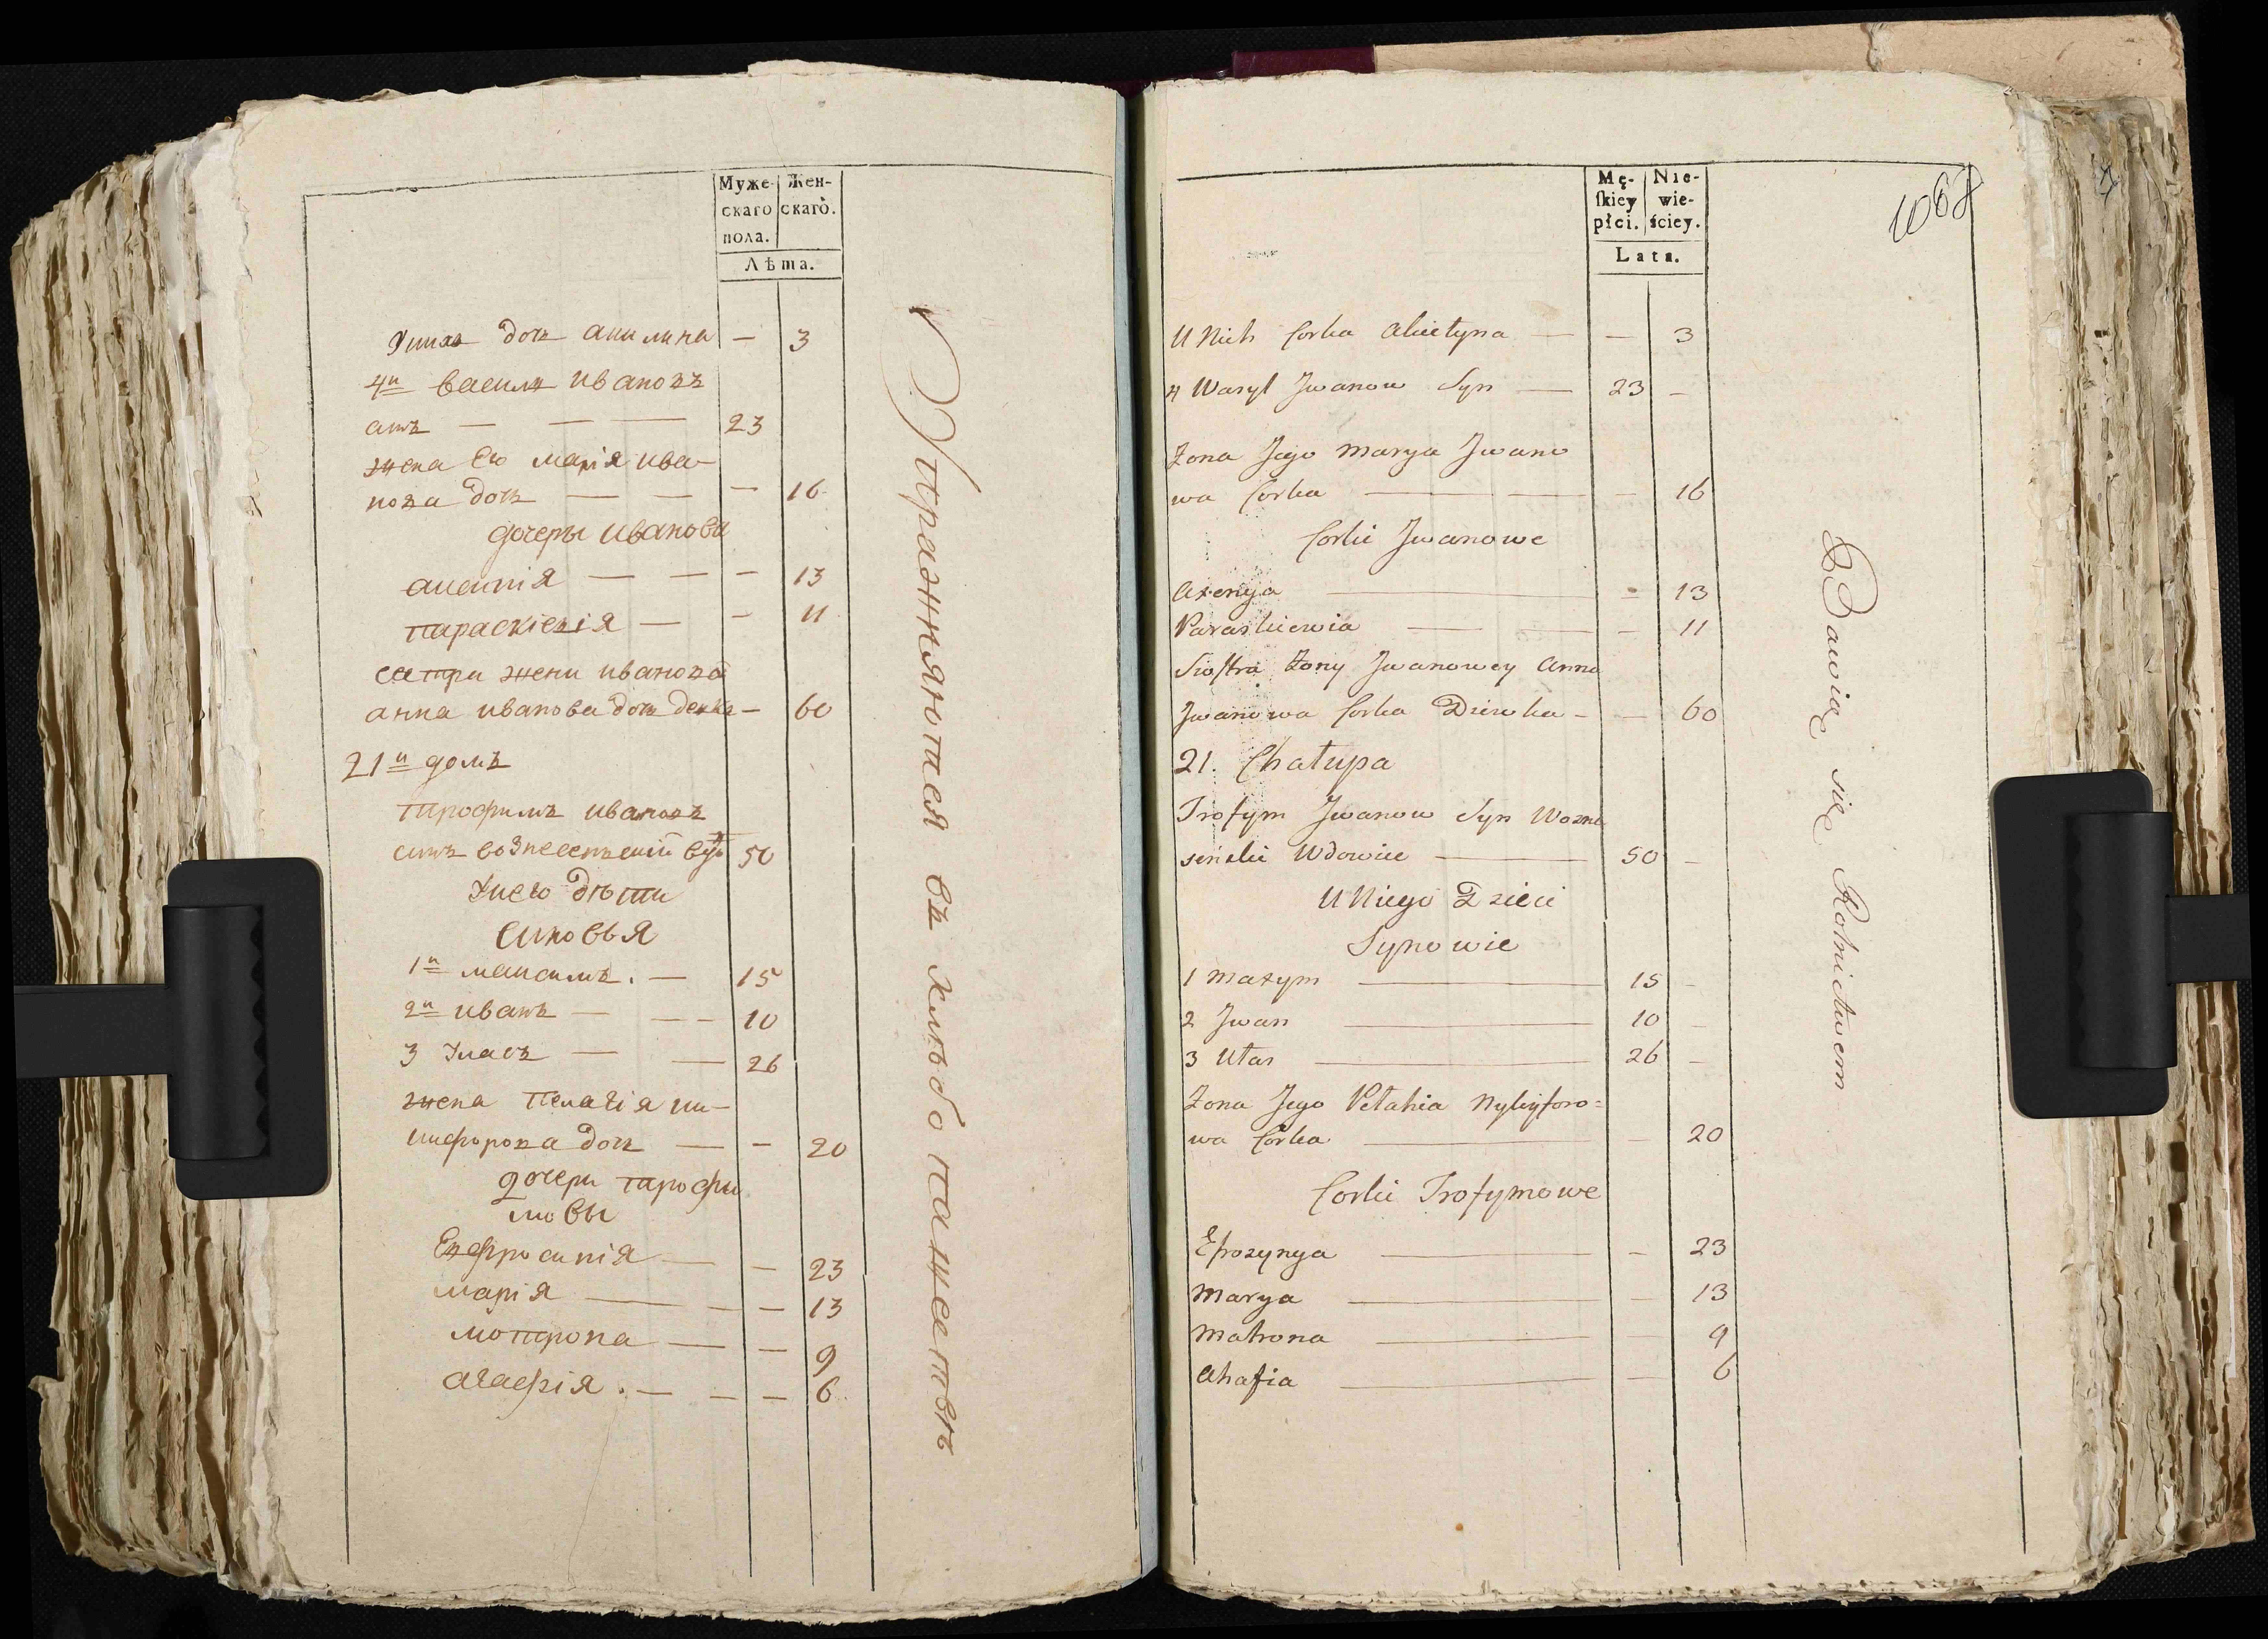 Муже-
скаго
пола.
Жен-
скаго.
Лѣта.
Унихъ дочь Акилина — 3
4й Василь Ивановъ
сынъ — — — 23
жена Ею Марія Ива-
нова дочь — — — 16
дочеры Иванови
Аксинія — — — 13
Параскіевія — — 11
сестра жени Ивановой
Анна Иванова дочь девка — 60
21й домъ
Трофимъ Ивановъ
сынъ Вознесенскій 50
Унего дѣти
синовья
1й Максимъ. — 15
2й Иванъ — — — 10
3 Уласъ — — 26
жена Пелагія Ни-
кифорова дочь — — 20
дочери Трофи
мовы
Евфросинія — — 23
Марія — — — 13
Мотрона — — 9
Агафія. — — — 6
Упражняютася въ хлѣбопашествѣ
Mę-
ſkiey
płci.
Nie-
wie-
ściey.
Lata.
1068
U Nich Corka Akietyna — — 3
4 Wasyl Jwanow Syn — 23 —
Zona Jego Marya Jwano
wa Corka — — — 16
Corki Jwanowe
Axenya — — 13
Paraskiewia — — — 11
Siostra Zony Jwanowey Anna
Jwanowa Corka Dziewka — — 60
21. Chałupa
Trofym Jwanow Syn Wozne
seński Wdowiec — 50 —
U Niego Dzieci
Synowie
1 Maxym — 15 —
2 Jwan — 10 —
3 Ułas — 26 —
Zona Jego Pełahia Nykyforo=
wa Córka — — 20
Corki Trofymowe
Efrozynya — — 23
Marya — — 13
Matrona — 9
Ahafia — — 6
Bawią się Rolnictwem